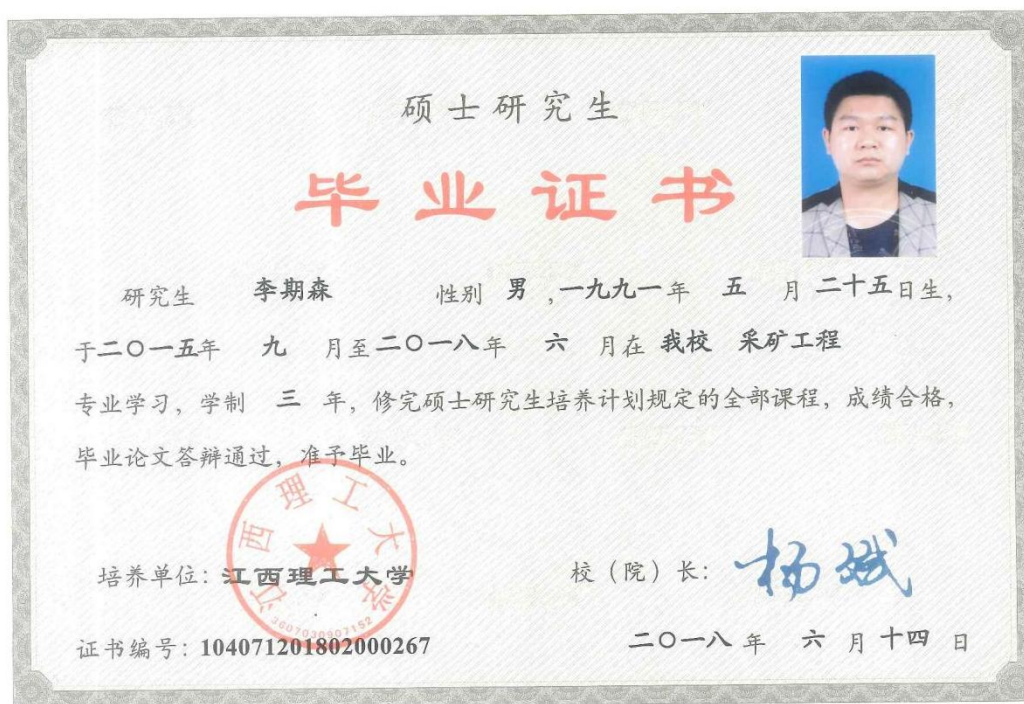 硕士研究生
毕业证书
研究生 李期森 性别 男 ,一九九一年 五 月二十五日生，
于二〇一五年 九 月至二〇一八年 六 月在 我校 采矿工程
专业学习，学制 三 年，修完硕士研究生培养计划规定的全部课程，成绩合格，
毕业论文答辩通过，准予毕业。
江西理工大学
培养单位：江西理工大学
校（院）长：杨斌
证书编号：104071201802000267
二〇一八年 六 月十四日